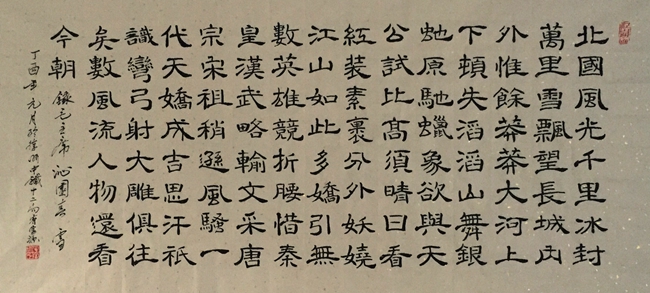 北國風光千里冰封
萬里雪飄望長城內
外惟餘莽莽大河上
下頓失滔滔山舞銀
虵原馳蠟象欲與天
公試比高須晴日看
紅装素裹分外妖嬈
江山如此多嬌引無
數英雄競折腰惜秦
皇漢武略輸文采唐
宗宋祖稍遜風騷一
代天嬌成吉思汗祇
識彎弓射大雕俱往
矣數風流人物還看
今朝 錄毛主席沁園春雪
丁酉年元月於